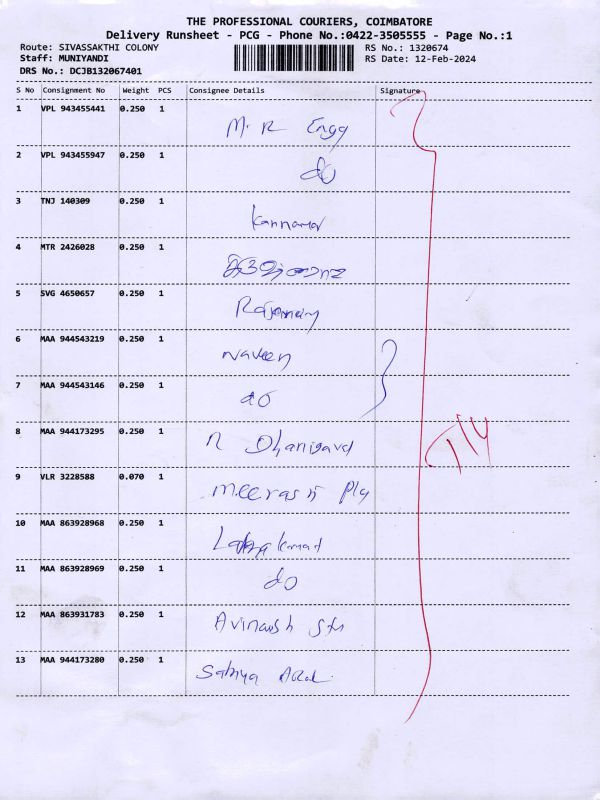 THE PROFESSIONAL COURIERS, COIMBATORE
Delivery Runsheet - PCG - Phone No.:0422-3505555 - Page No.:1
Route: SIVASSAKTHI COLONY RS No.: 1320674
Staff: MUNIYANDI RS Date: 12-Feb-2024
DRS No.: DCJB132067401
S No Consignment No Weight PCS Consignee Details Signature
1 VPL 943455441 0.250 1 M. R Engg
2 VPL 943455947 0.250 1 do
3 TNJ 140309 0.250 1
4 MTR 2426028 0.250 1
5 SVG 4650657 0.250 1
6 MAA 944543219 0.250 1 Naveen
7 MAA 944543146 0.250 1 do
8 MAA 944173295 0.250 1 R
9 VLR 3228588 0.070 1
10 MAA 863928968 0.250 1
11 MAA 863928969 0.250 1 do
12 MAA 863931783 0.250 1 Avinash
13 MAA 944173280 0.250 1